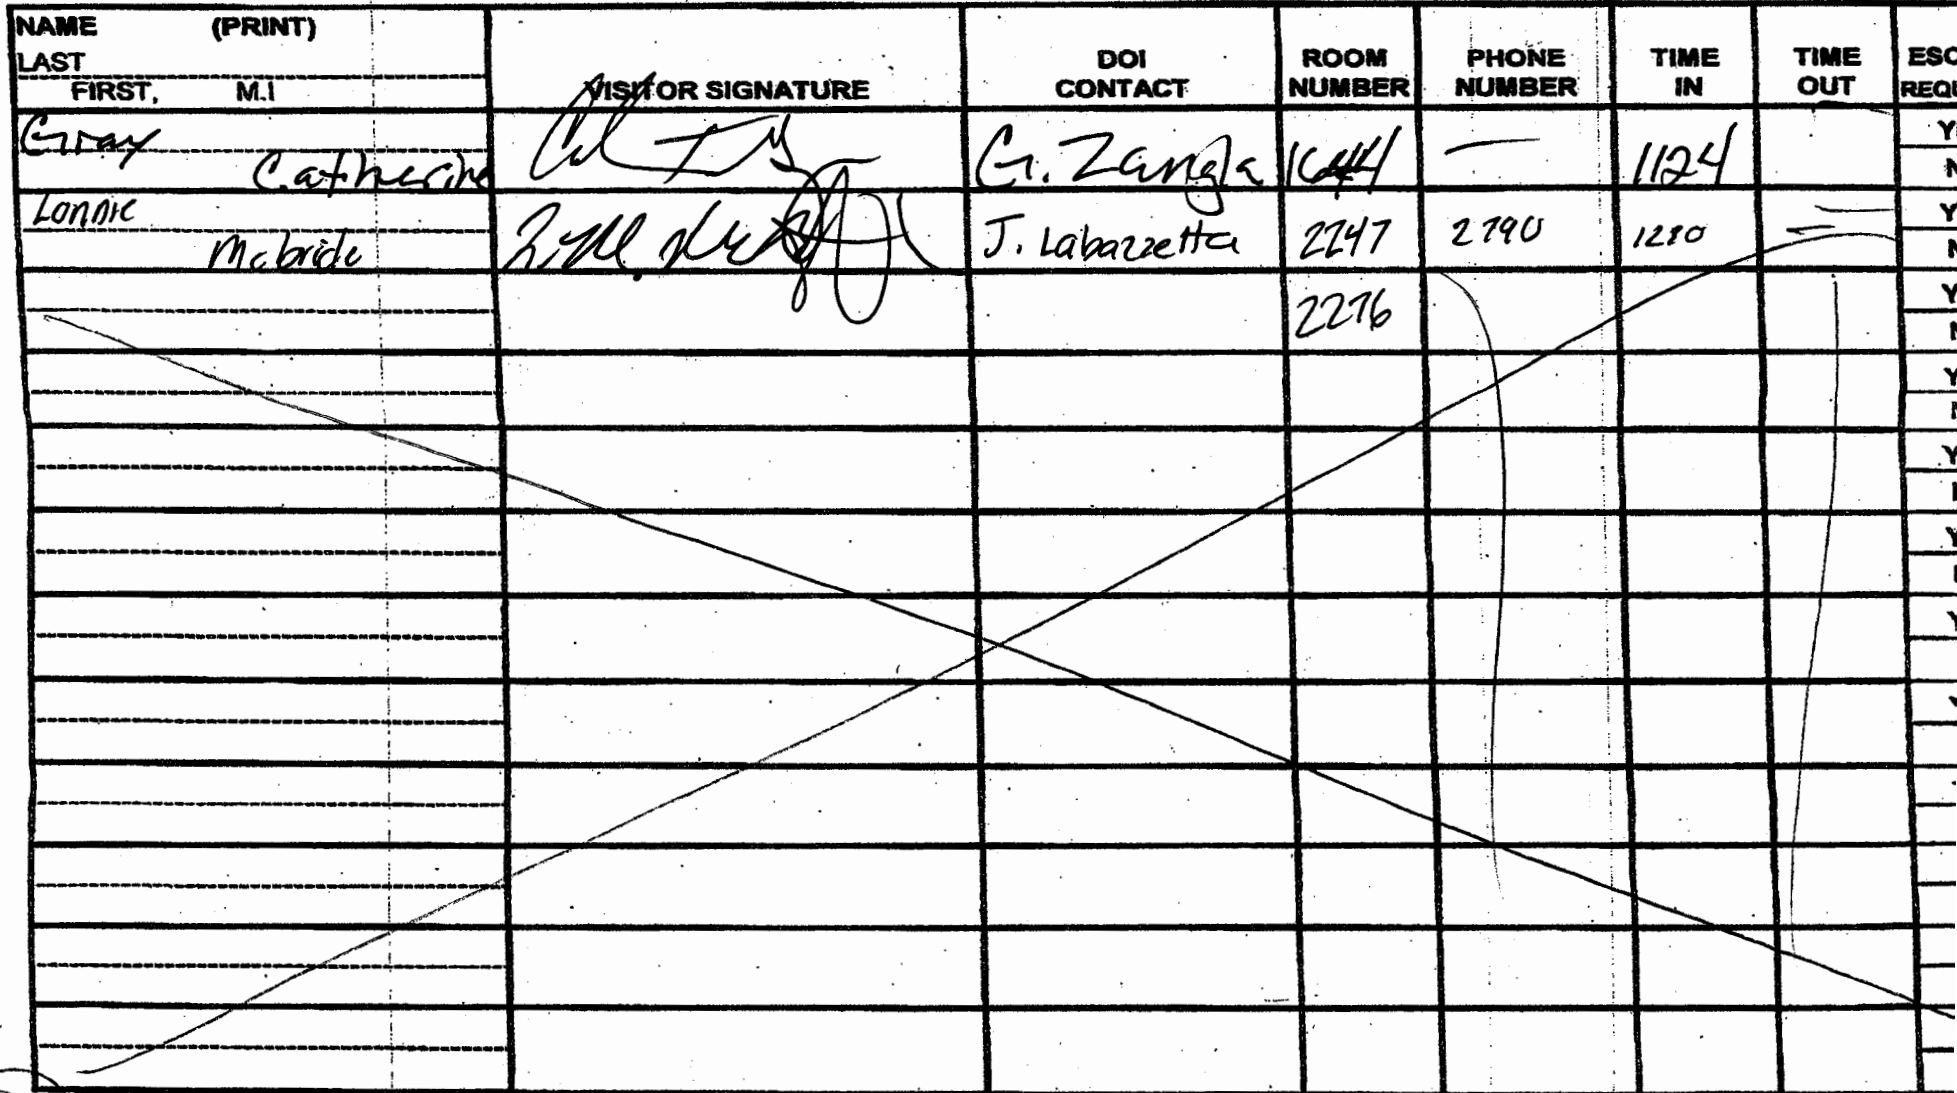 NAME (PRINT)
LAST
FIRST, M.I
VISITOR SIGNATURE
DOI CONTACT
ROOM NUMBER
PHONE NUMBER
TIME IN
TIME OUT
Gray
Catherine
G. Zangla
1644
—
1124
Y
N
Lonnie
Mcbride
J. Labazzetta
2247
2790
1210
Y
N
2276
Y
N
Y
N
Y
Y
Y